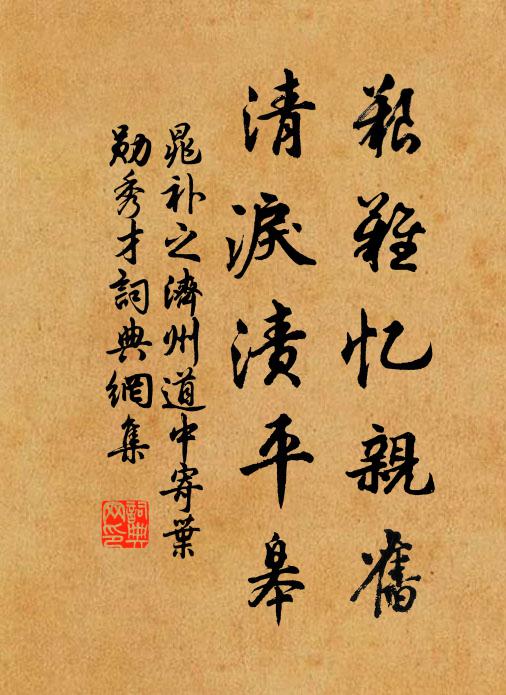 艱難忆親舊
清淚漬平皋
晁补之濟州道中寄葉
勛秀才詞典網集
詞典网印